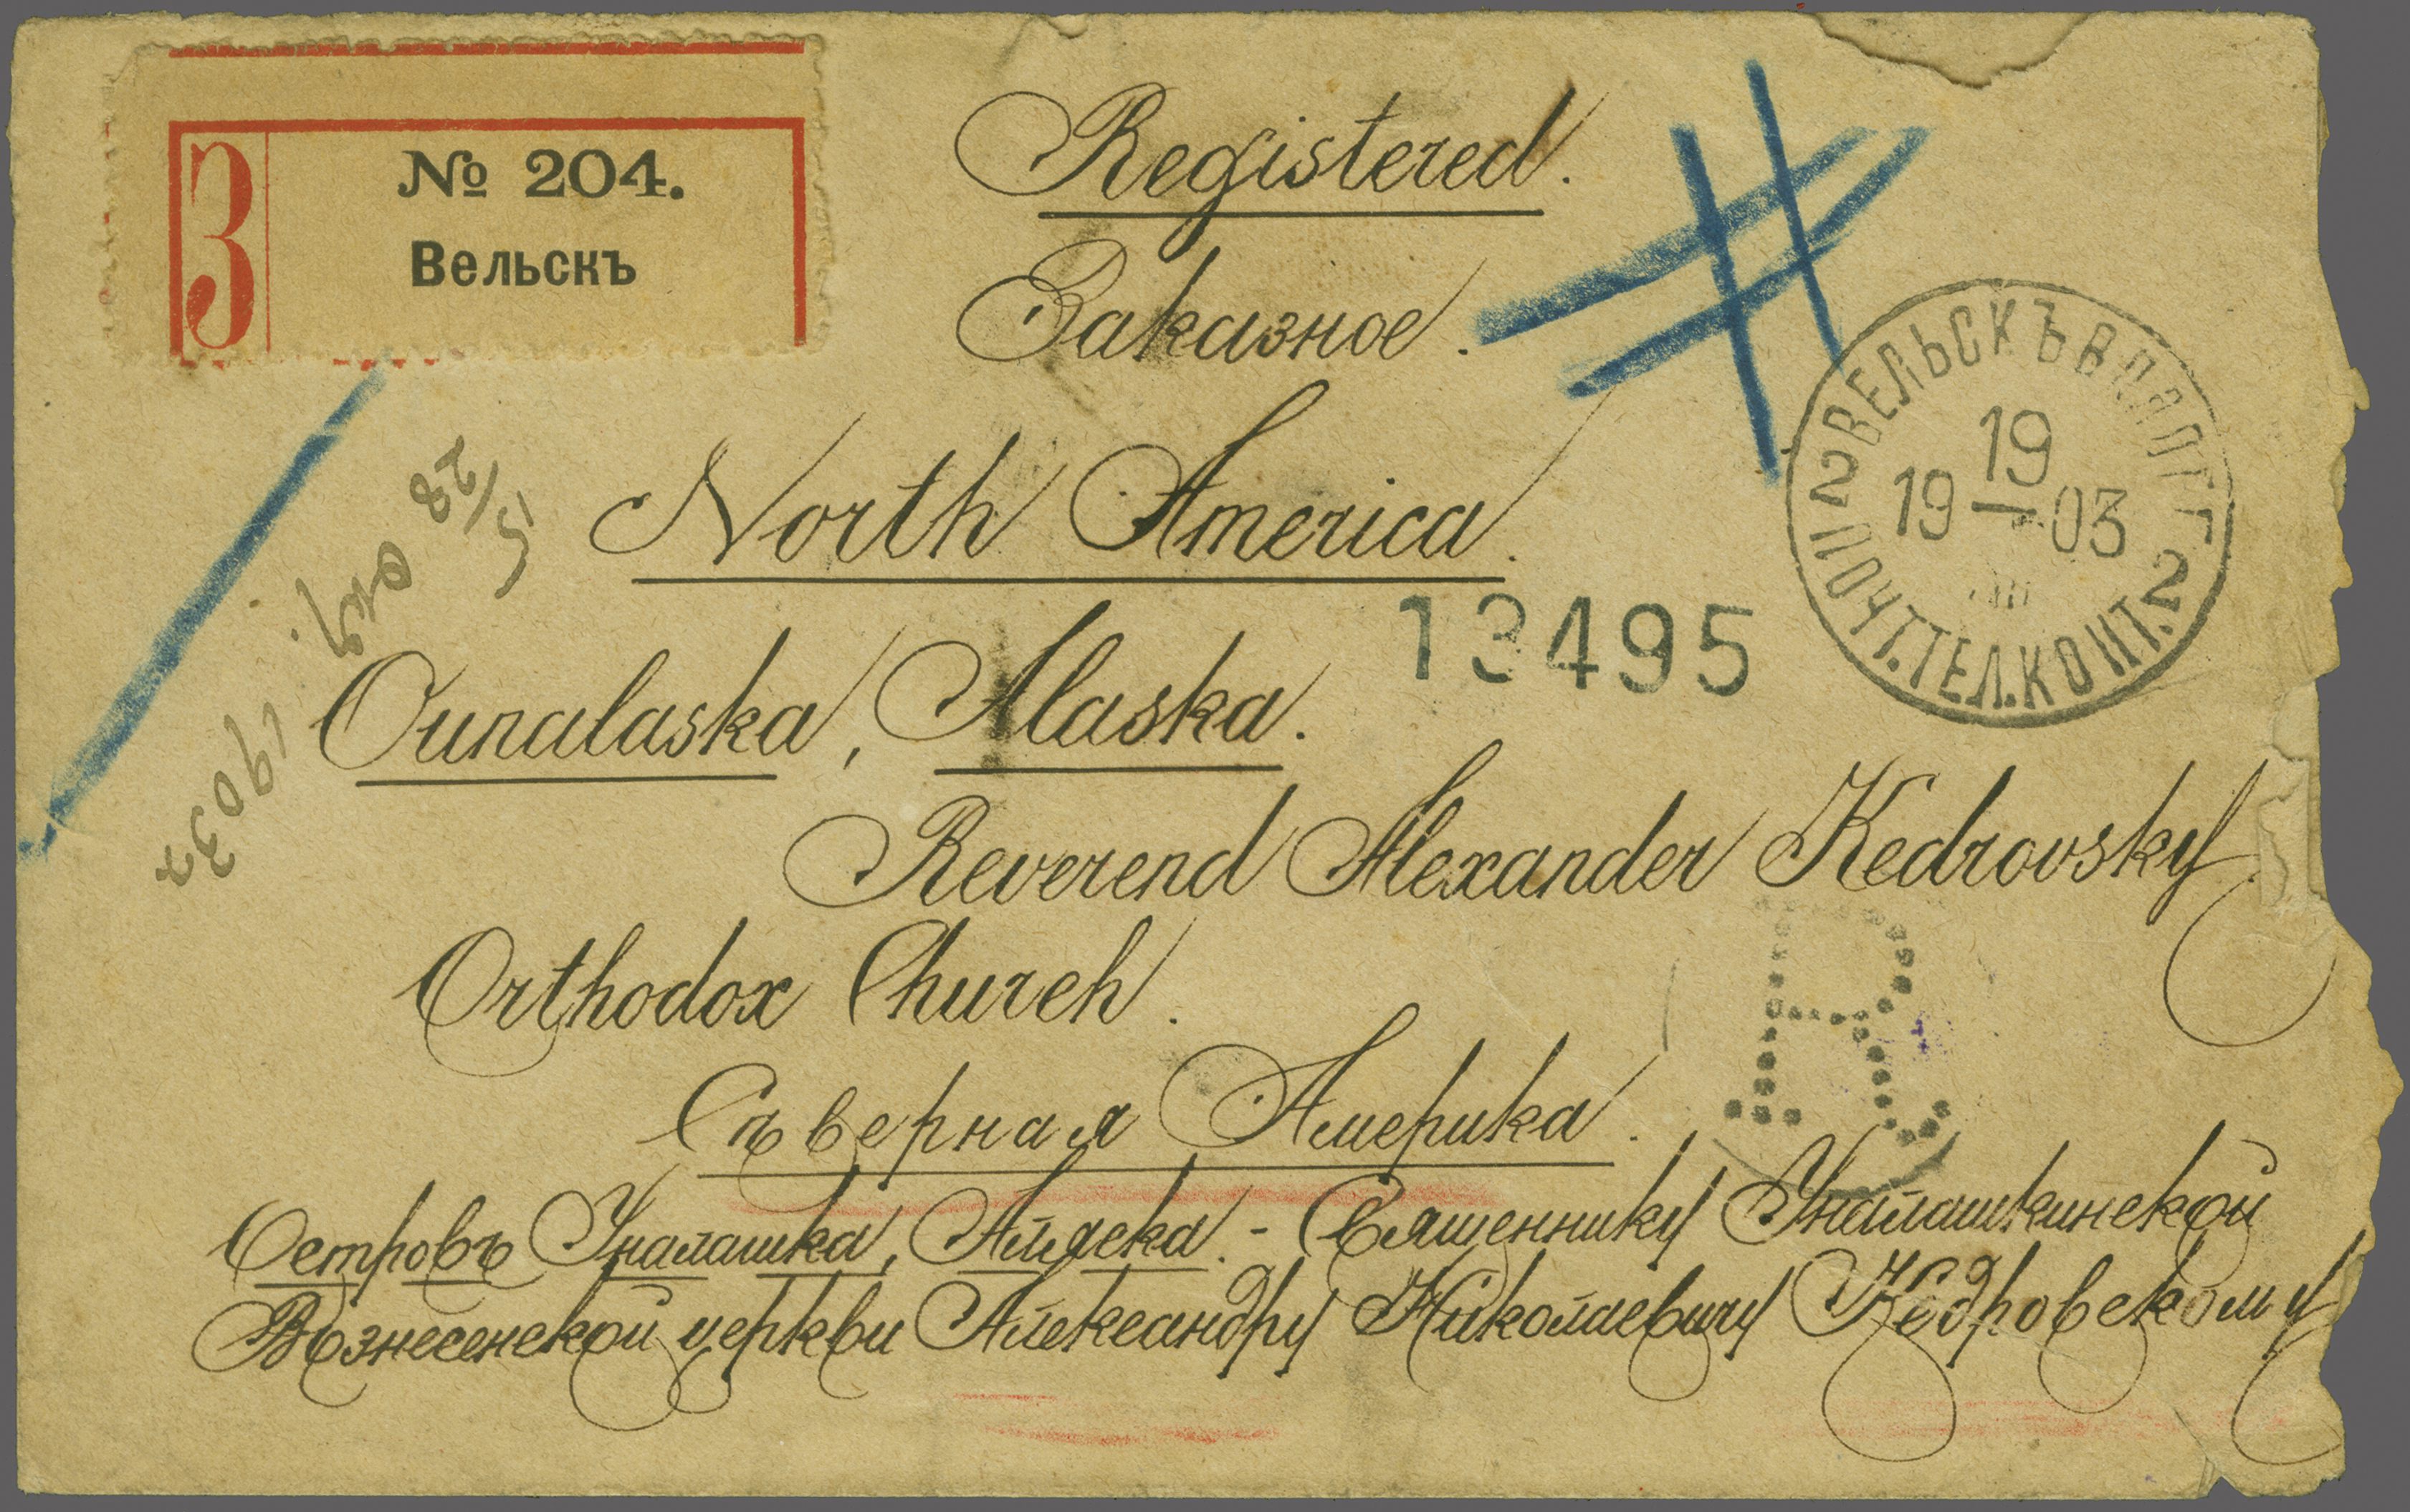 З
№ 204.
Вельскъ
Registered.
Заказное.
North America.
Ounalaska, Alaska.
13495
ВЕЛЬСКЪ ВОЛОГ. Г.
19
19 – 03
2 2
ПОЧТ.ТЕЛ.КОНТ.
Reverend Alexander Kedrovsky.
Orthodox Church.
R
Сѣверная Америка.
Островъ Уналашка, Аляска. - Священнику Уналашкинской
Вознесенской церкви Александру Николаевичу Кедровскому
окт. 1903 г.